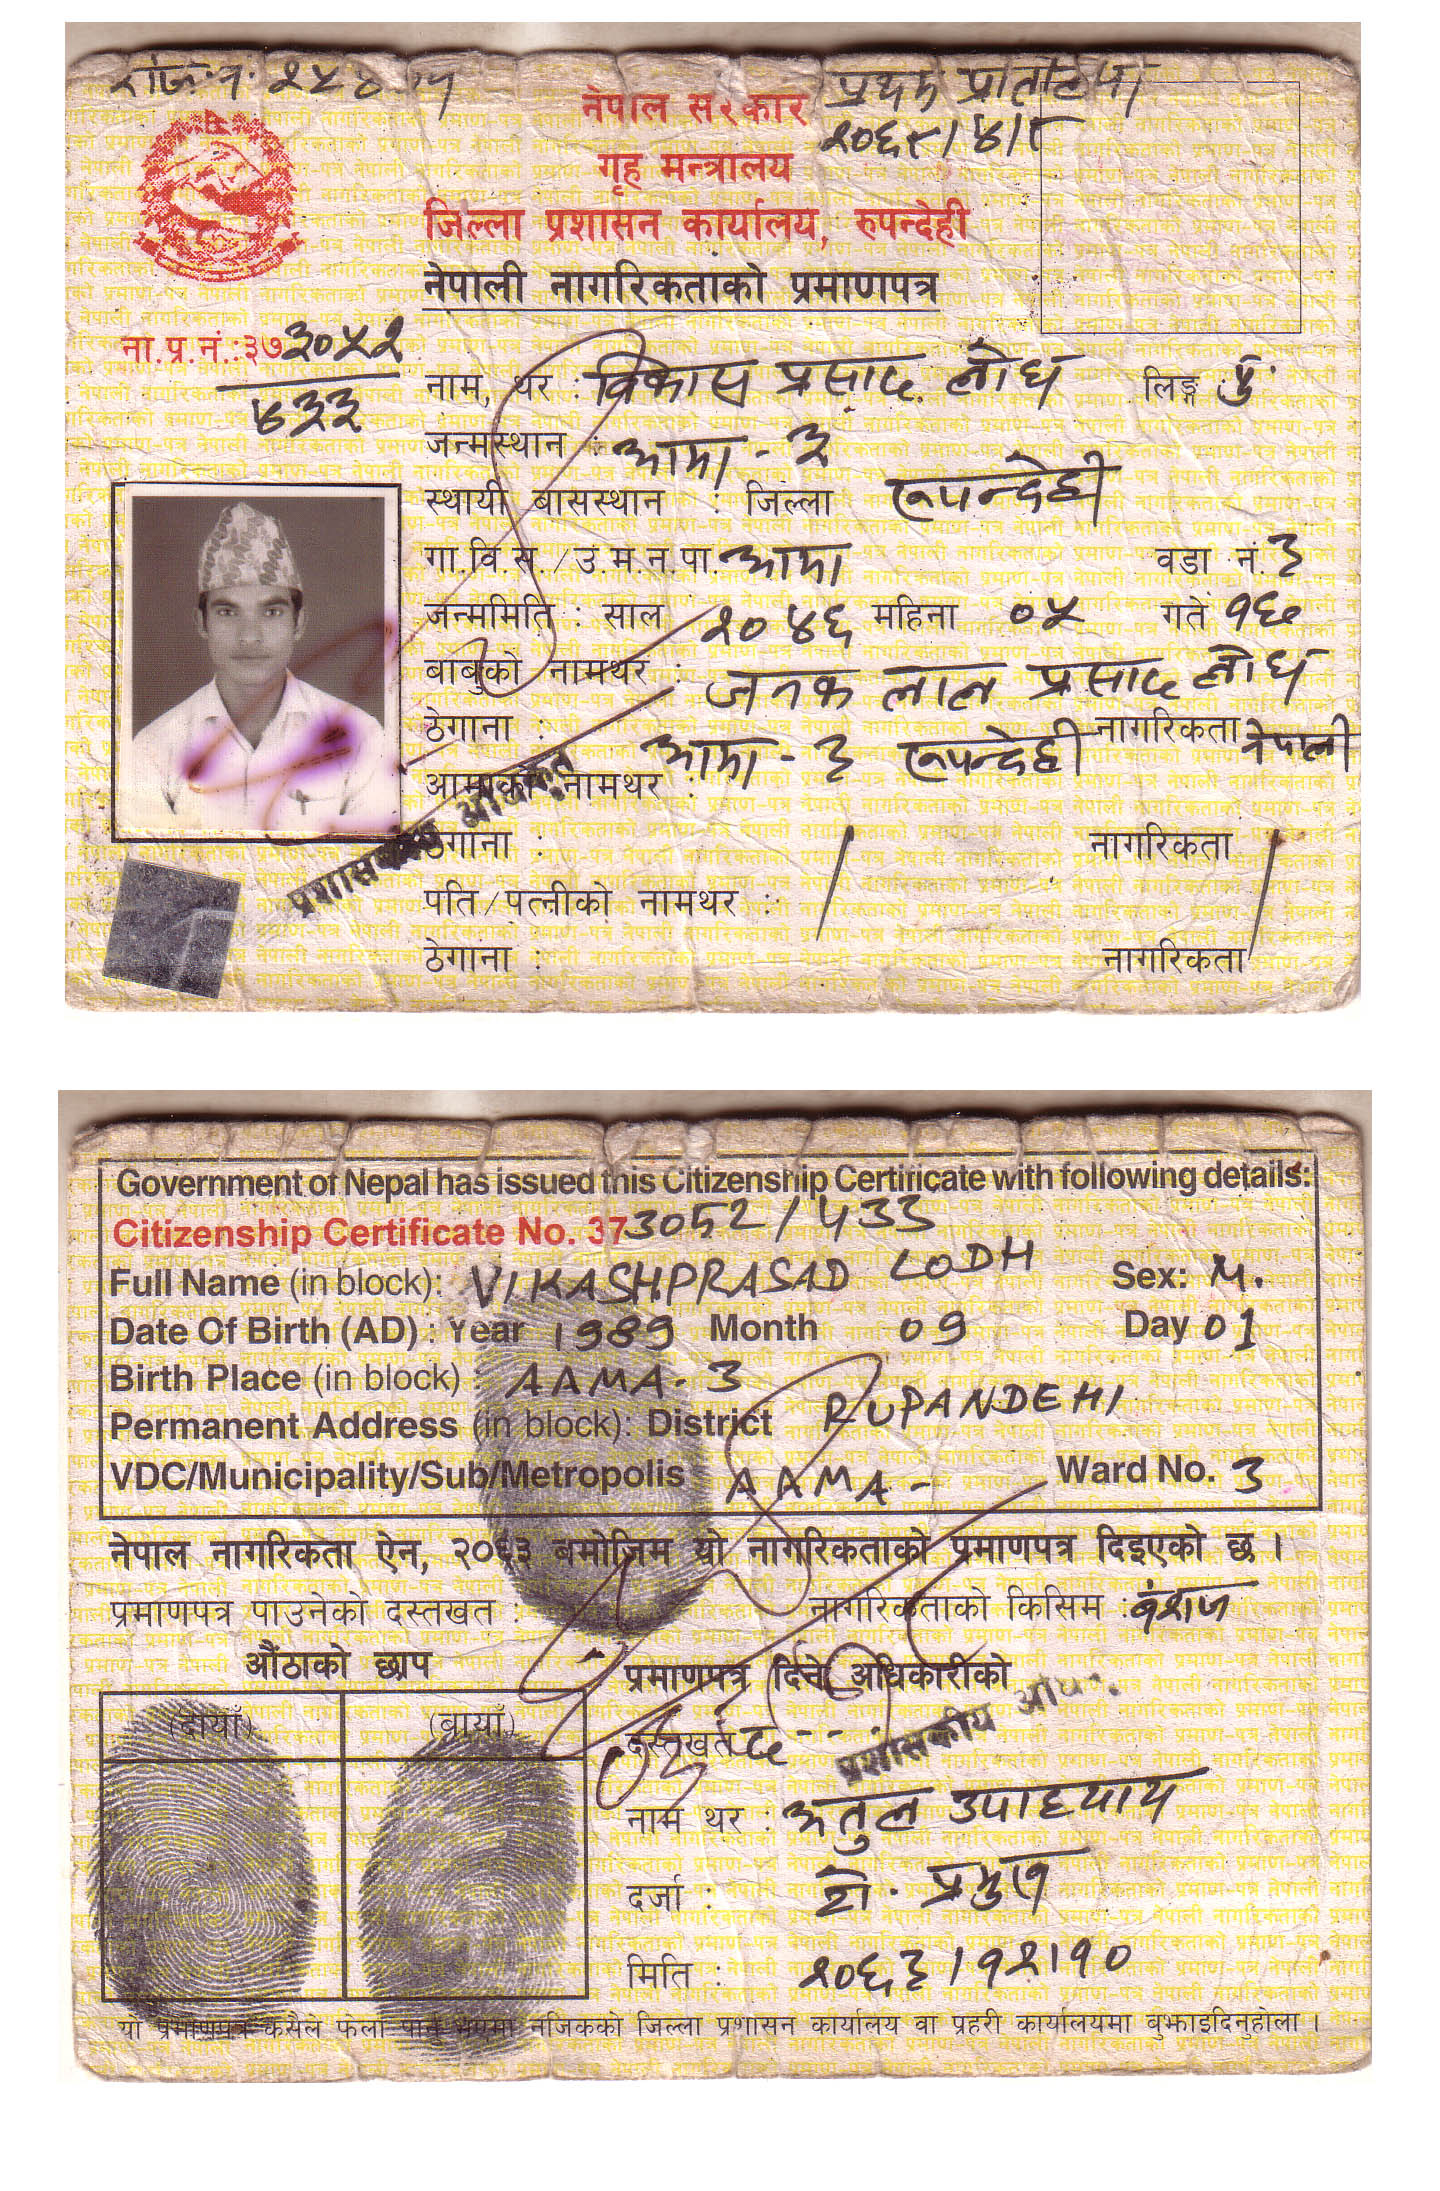 प्रथम प्रतिलिपी
नेपाल सरकार
२०६९/४/९
गृह मन्त्रालय
जिल्ला प्रशासन कार्यालय, रुपन्देही
नेपाली नागरिकताको प्रमाणपत्र
ना.प्र.नं.:३७३०५२
४३३
नाम, थर : विकास प्रसाद लोध लिङ्ग : पु.
जन्मस्थान : आमा - ३
स्थायी बासस्थान : जिल्ला रूपन्देही
गा.वि.स./उ.म.न.पा. आमा वडा नं. ३
जन्ममिति : साल २०४६ महिना ०५ गते १६
बाबुको नामथर : जनक लाल प्रसाद लोध
ठेगाना : आमा - ३ रूपन्देही नागरिकता नेपाली
आमाको नामथर :
ठेगाना : नागरिकता
पति/पत्नीको नामथर :
ठेगाना : नागरिकता
प्रशासकीय अधिकृत
Government of Nepal has issued this Citizenship Certificate with following details:
Citizenship Certificate No. 373052/433
Full Name (in block): VIKASHPRASAD LODH Sex: M.
Date Of Birth (AD) : Year 1989 Month 09 Day 01
Birth Place (in block) : AAMA - 3
Permanent Address (in block): District RUPANDEHI
VDC/Municipality/Sub/Metropolis AAMA - Ward No. 3
नेपाल नागरिकता ऐन, २०६३ बमोजिम यो नागरिकताको प्रमाणपत्र दिइएको छ ।
प्रमाणपत्र पाउनेको दस्तखत : नागरिकताको किसिम : वंशज
औंठाको छाप
प्रमाणपत्र दिने अधिकारीको
(दायाँ) (वायाँ)
दस्तखत द----
प्रशासकीय
नाम थर : अतुल उपाध्याय
दर्जा : टो. प्रमुख
मिति : २०६३।१२।१०
यो प्रमाणपत्र कसैले फेला पारे भएमा नजिकको जिल्ला प्रशासन कार्यालय वा प्रहरी कार्यालयमा बुझाइदिनुहोला ।